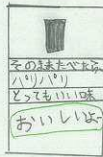 そのままたべたら
パリパリ
とってもいい味
おいしいよー